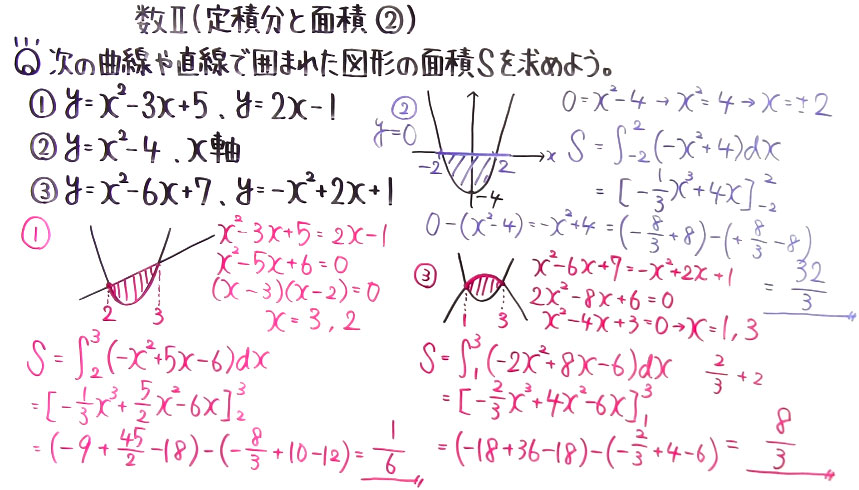 数Ⅱ(定積分と面積②)
Q 次の曲線や直線で囲まれた図形の面積Sを求めよう。
① y=x²-3x+5、y=2x-1
② y=x²-4、x軸
③ y=x²-6x+7、y=-x²+2x+1
①
2 3
x²-3x+5=2x-1
x²-5x+6=0
(x-3)(x-2)=0
x=3,2
S=∫₂³(-x²+5x-6)dx
=[-1/3x³+5/2x²-6x]₂³
=(-9+45/2-18)-(-8/3+10-12)=1/6
②
y=0
-2 2 x
-4
0=x²-4→x²=4→x=±2
S=∫₋₂²(-x²+4)dx
=[-1/3x³+4x]₋₂²
0-(x²-4)=-x²+4
=(-8/3+8)-(+8/3-8)
=32/3
③
1 3
x²-6x+7=-x²+2x+1
2x²-8x+6=0
x²-4x+3=0→x=1,3
S=∫₁³(-2x²+8x-6)dx
2/3+2
=[-2/3x³+4x²-6x]₁³
=(-18+36-18)-(-2/3+4-6)=8/3